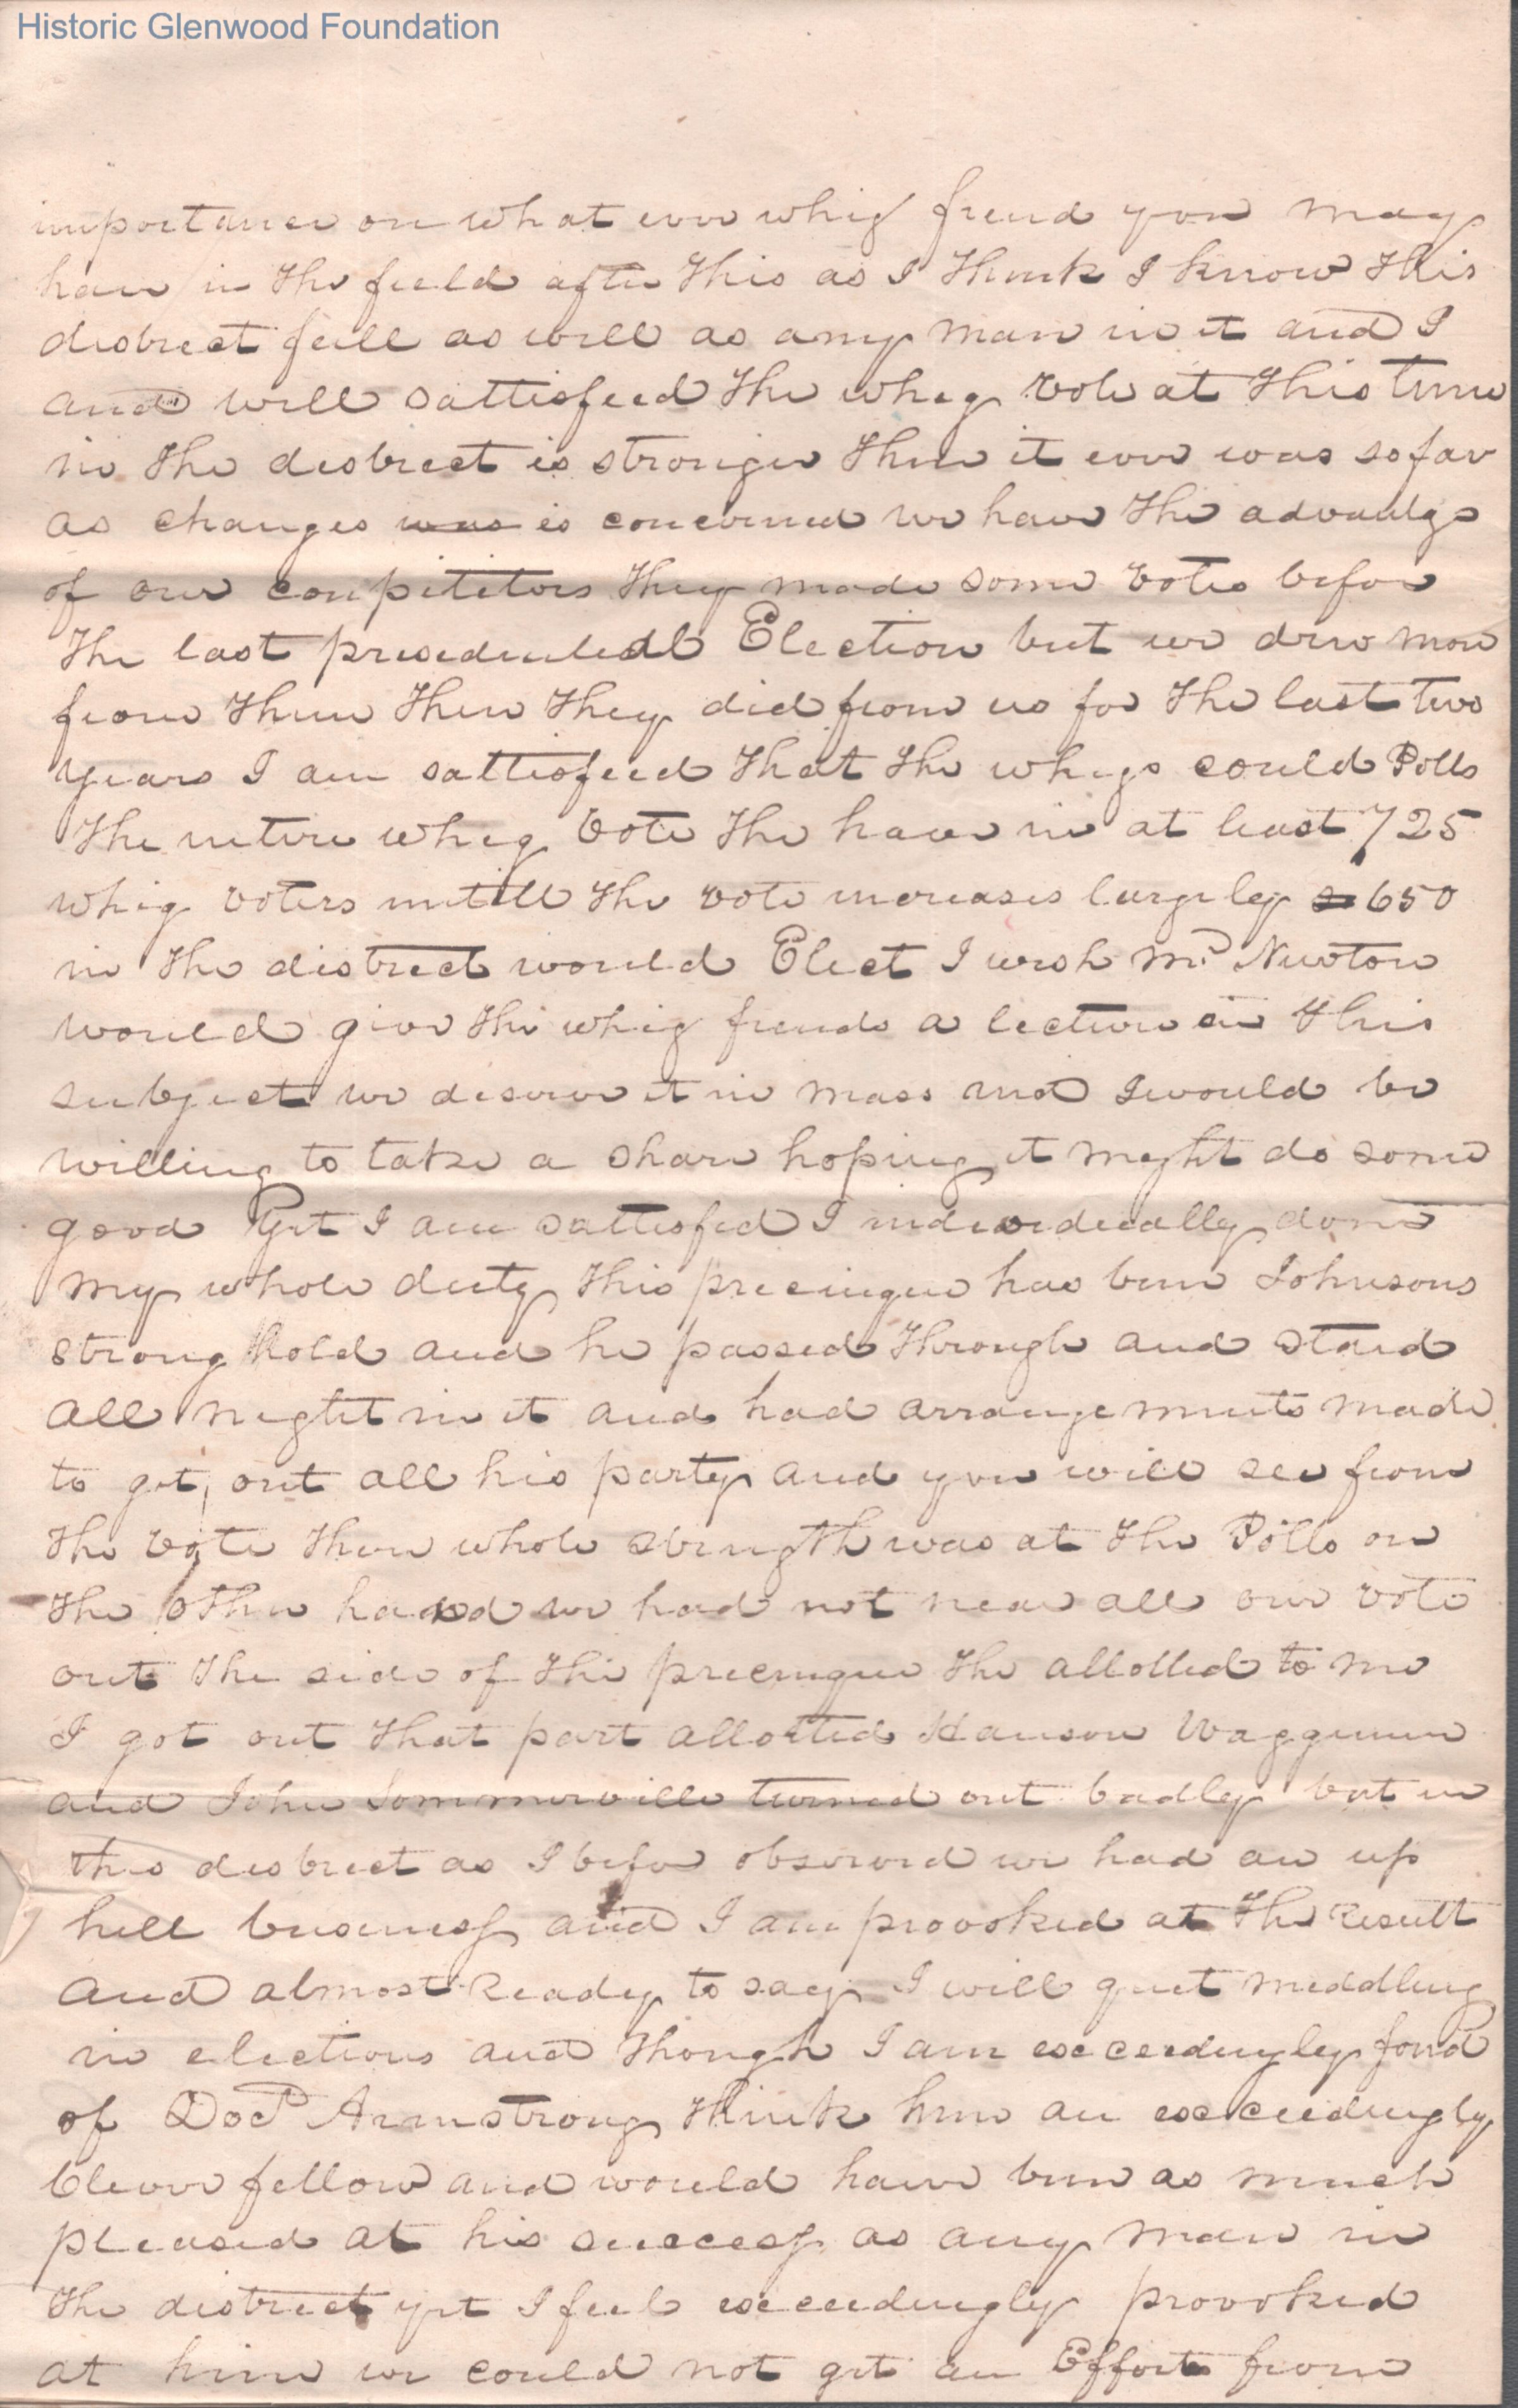 Historic Glenwood Foundation
importance on what ever whig freind you may
have in the feild after this as I think I know this
destrect full as well as any man in it and I
and well sattisfeed the wheg vote at this time
in the destrect is stronger then it ever was so far
as changes was is concerned we have the advantge
of our conpititors they made some votes before
the last presedentedl Election but we drew more
from them then they did from us for the last two
years I am sattisfeed that the whigs could Polls
the entire wheg vote the have in at least 725
whig voters untill the vote increases largeley 650
in the district would Elect I wish Mr Newton
would give the whig freinds a lecture on this
subject we deserve it in mass and I would be
willing to take a share hoping it meght do some
good Yet I am sattisfed I indevedeually done
my whole duty this precinque has been Johnsons
strong hold and he passed through and staid
all neght in it and had arrangements made
to get out all his party and you will see from
the vote there whole strength was at the Polls on
the other hand we had not near all our vote
out the side of the precinque the allotted to me
I got out that part allotted Hanson Waggener
and John Sommerville turned out badly but in
this destrect as I before observed we had an up
hell business and I am provoked at the result
and almost ready to say I will quet meddling
in elections and though I am exceedingley fond
of Doct Armstrong think him an exceedingly
Clever fellow and would have been as much
pleased at his success as any man in
the district yet I feel exceedingly provoked
at him we could not get an Effort from